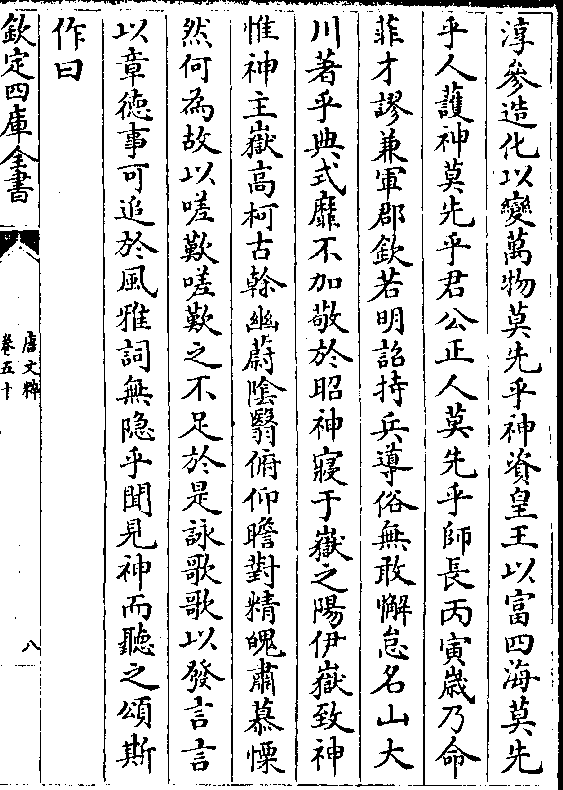 淳參造化以變萬物莫先乎神資皇王以富四海莫先
乎人䕶神莫先乎君公正人莫先乎師長丙寅歳乃命
菲才謬兼軍郡欽若明詔持兵導俗無敢懈怠名山大
川著乎典式靡不加敬於昭神寢于嶽之陽伊嶽致神
惟神主嶽髙柯古幹幽蔚隂翳俯仰瞻對精魄肅慕慄
然何為故以嗟歎嗟歎之不足於是詠歌歌以發言言
以章徳事可追於風雅詞無隐乎聞見神而聽之頌斯
作曰
欽定四庫全書
唐文粹
卷五十
八